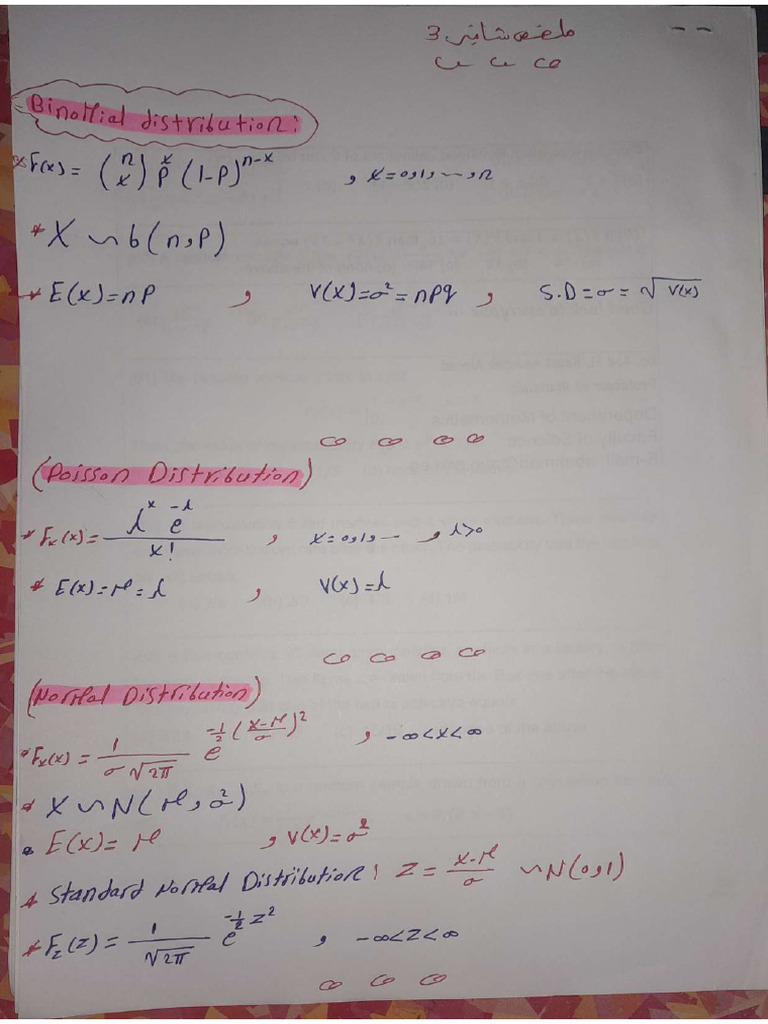 ملخص شابتر 3
Binomial distribution:
* F(x) = (n x) p^x (1-P)^(n-x) , x=0,1,...,n
* X ~ b(n,p)
* E(x)=np , V(x)=σ²=npq , S.D=σ=√V(x)
(Poisson Distribution)
* Fx(x) = λ^x e^-λ / x! , x=0,1,... , λ>0
* E(x)=μ=λ , V(x)=λ
(Normal Distribution)
* Fx(x) = 1/(σ√2π) e^(-1/2 ((x-μ)/σ)²) , -∞<x<∞
* X ~ N(μ, σ²)
* E(x)=μ , V(x)=σ²
* Standard Normal Distribution: Z = (x-μ)/σ ~ N(0,1)
* Fz(z) = 1/√2π e^(-1/2 z²) , -∞<z<∞